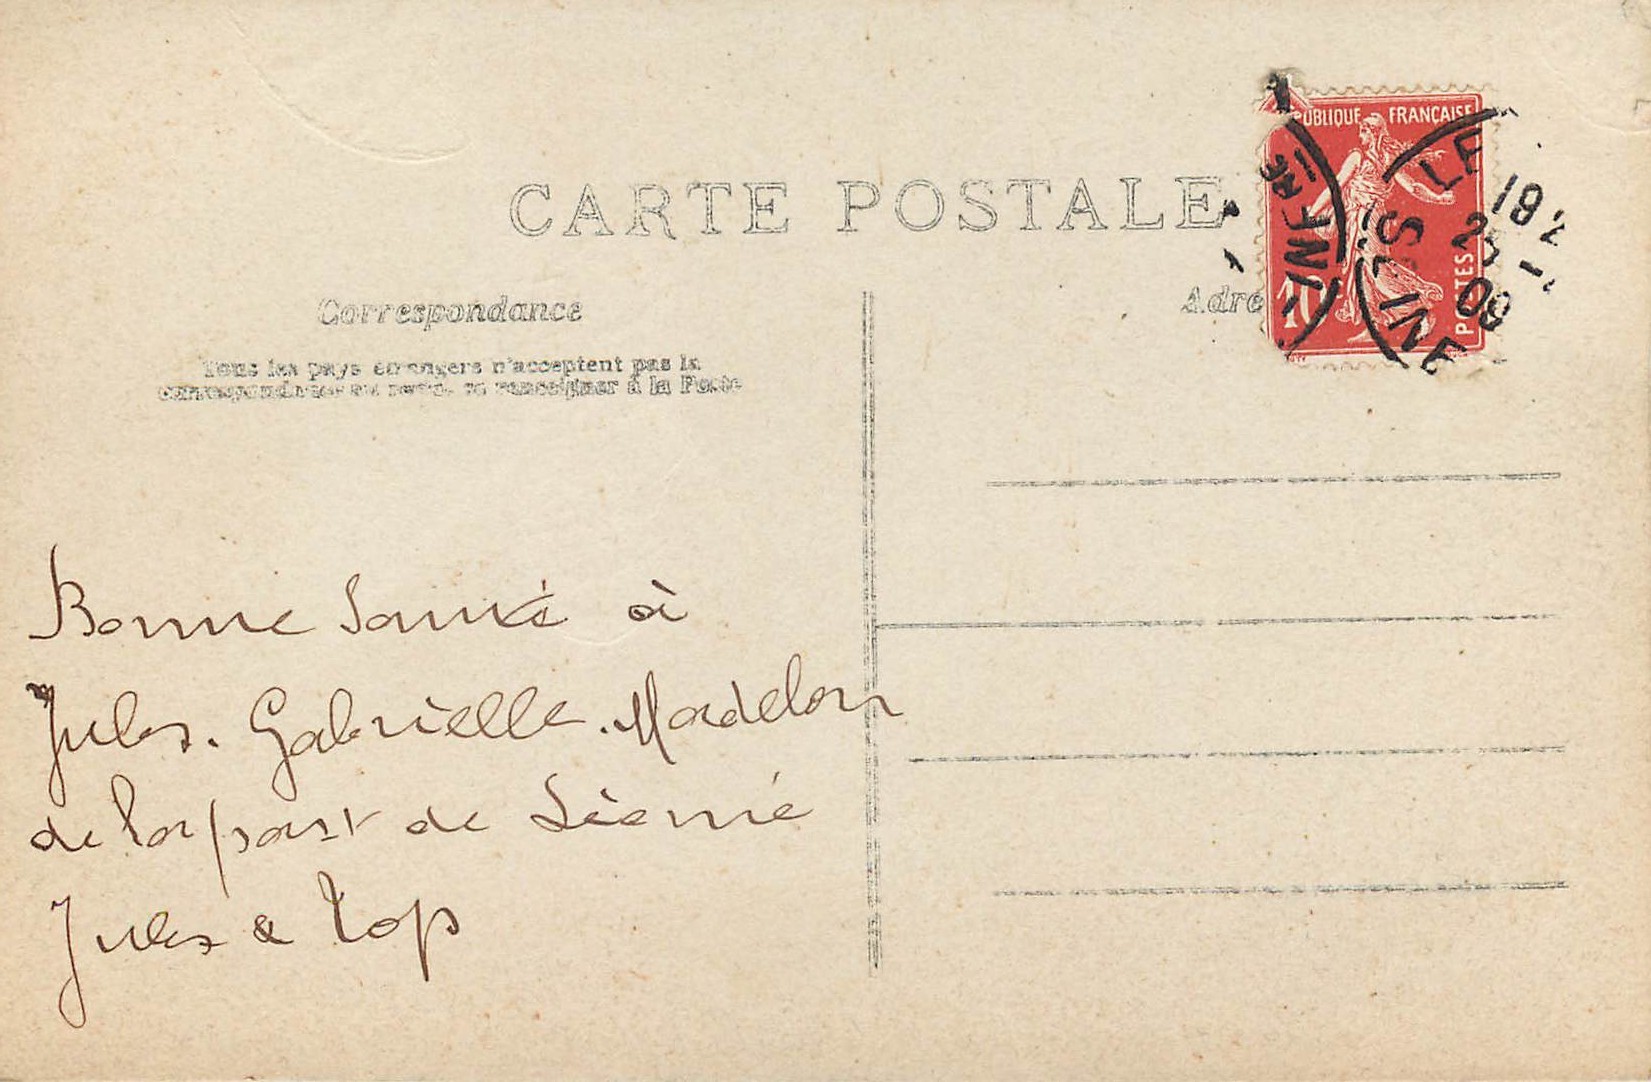 CARTE POSTALE
Correspondance
Tous les pays étrangers n'acceptent pas la
correspondance au recto, se renseigner à la Poste
Adre
PUBLIQUE FRANÇAISE
10
POSTES
LE
18
23
09
SEINE
Bonne Santé à
Jules. Gabrielle. Madelon
de la part de Léonie
Jules & Top